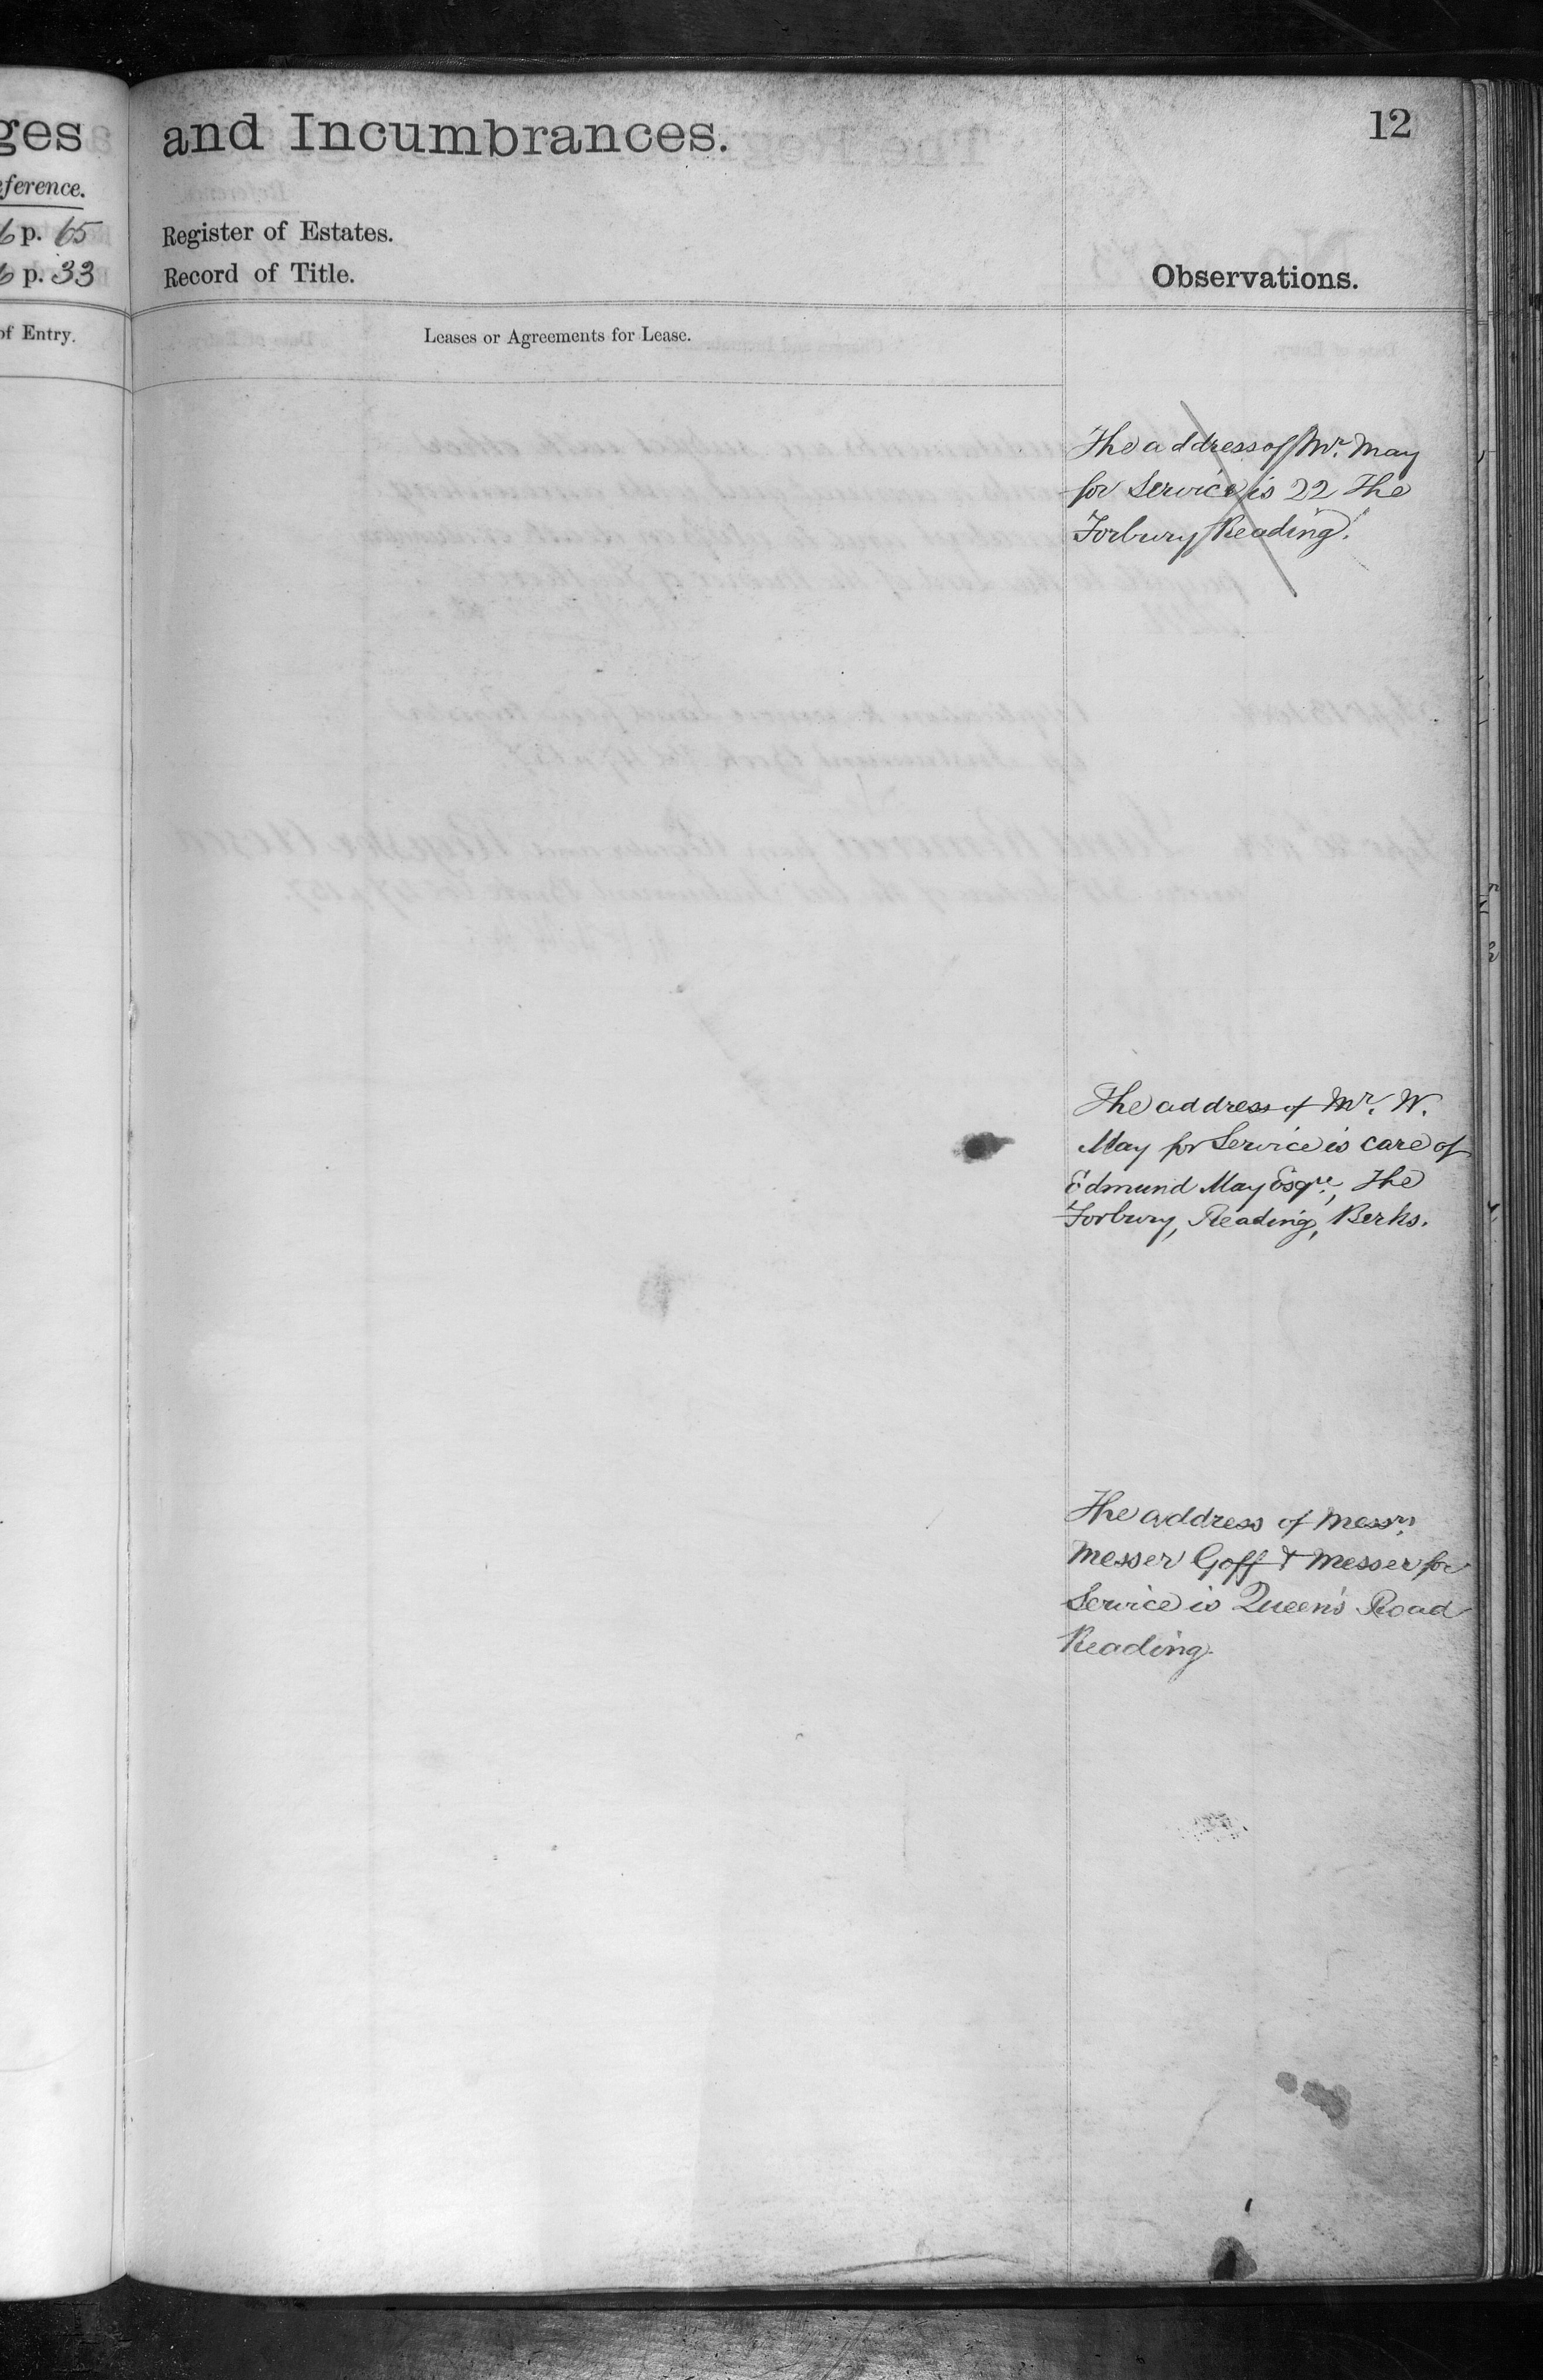 ges
eference.
6 p. 65
6 p. 33
of Entry.
and Incumbrances.
12
Register of Estates.
Record of Title.
Observations.
Leases or Agreements for Lease.
The address of Mr. May
for Service is 22 The
Forbury Reading.
The address of Mr. W.
May for Service is care of
Edmund May Esqre., The
Forbury, Reading, Berks.
The address of Messrs.
Messer Goff & Messer for
Service is Queen's Road
Reading.